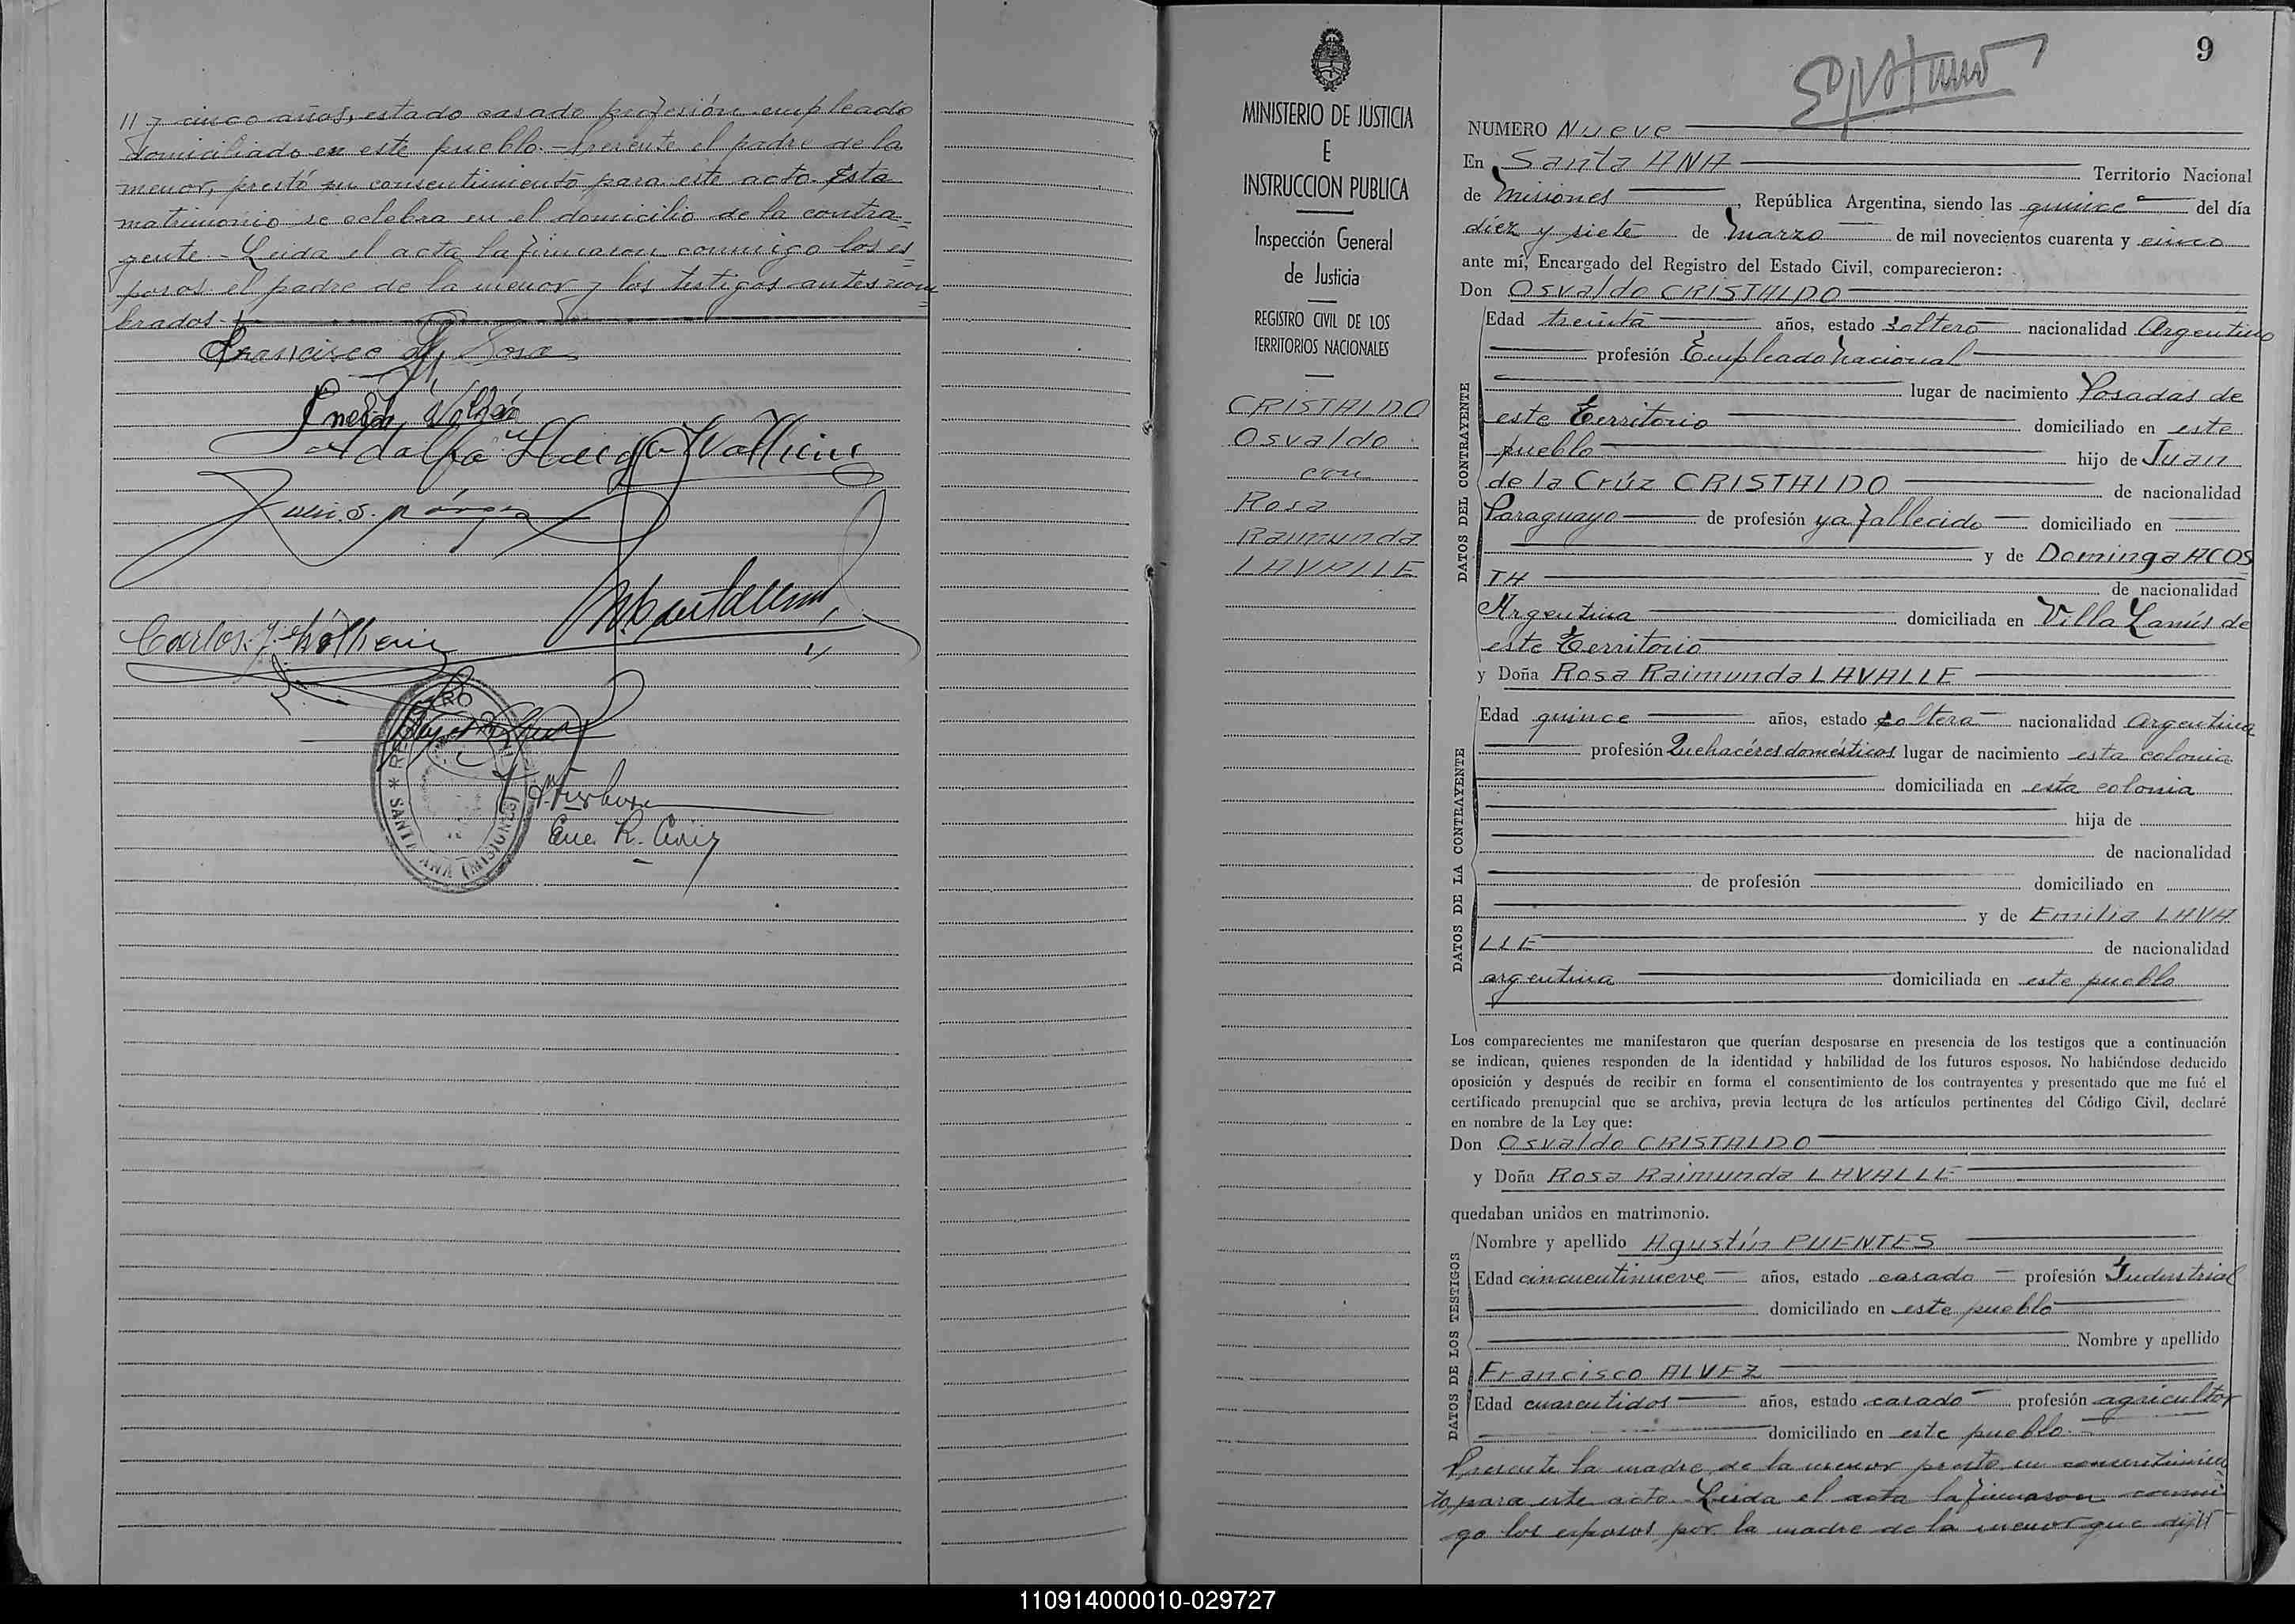 // y cinco años, estado casado profesión empleado
domiciliado en este pueblo.- Presente el padre de la
menor, prestó su consentimiento para este acto. Este
matrimonio se celebra en el domicilio de la contra=
yente.- Leida el acta la firmaron conmigo los es=
posos el padre de la menor y los testigos antes nom=
brados.-
Francisco Sosa
Carlos J.
REGISTRO
* SANTA ANA (MISIONES)
Enc. R. Civil
MINISTERIO DE JUSTICIA
E
INSTRUCCION PUBLICA
Inspección General
de Justicia
REGISTRO CIVIL DE LOS
TERRITORIOS NACIONALES
CRISTALDO
Osvaldo
con
Rosa
Raimunda
LAVALLE
9
NUMERO Nueve
En Santa ANA Territorio Nacional
de Misiones, República Argentina, siendo las quince del día
diez y siete de Marzo de mil novecientos cuarenta y cinco
ante mí, Encargado del Registro del Estado Civil, comparecieron:
Don Osvaldo CRISTALDO
DATOS DEL CONTRAYENTE
Edad treinta años, estado soltero nacionalidad Argentino
profesión Empleado Nacional
lugar de nacimiento Posadas de
este Territorio domiciliado en este
pueblo hijo de Juan
de la Crúz CRISTALDO de nacionalidad
Paraguayo de profesión ya fallecido domiciliado en
y de Dominga ACOS
TA de nacionalidad
Argentina domiciliada en Villa Lanús de
este Territorio
y Doña Rosa Raimunda LAVALLE
DATOS DE LA CONTRAYENTE
Edad quince años, estado soltera nacionalidad Argentina
profesión Quehacéres domésticos lugar de nacimiento esta colonia
domiciliada en esta colonia
hija de
de nacionalidad
de profesión domiciliado en
y de Emilia LAVA
LLE de nacionalidad
argentina domiciliada en este pueblo
Los comparecientes me manifestaron que querían desposarse en presencia de los testigos que a continuación
se indican, quienes responden de la identidad y habilidad de los futuros esposos. No habiéndose deducido
oposición y después de recibir en forma el consentimiento de los contrayentes y presentado que me fué el
certificado prenupcial que se archiva, previa lectura de los artículos pertinentes del Código Civil, declaré
en nombre de la Ley que:
Don Osvaldo CRISTALDO
y Doña Rosa Raimunda LAVALLE
quedaban unidos en matrimonio.
DATOS DE LOS TESTIGOS
Nombre y apellido Agustín PUENTES
Edad cincuentinueve años, estado casado profesión Industrial
domiciliado en este pueblo
Nombre y apellido
Francisco ALVEZ
Edad cuarentidos años, estado casado profesión agricultor
domiciliado en este pueblo.-
Presente la madre de la menor prestó su consentimien
to para este acto. Leida el acta la firmaron conmi
go los esposos por la madre de la menor que dij//
110914000010-029727